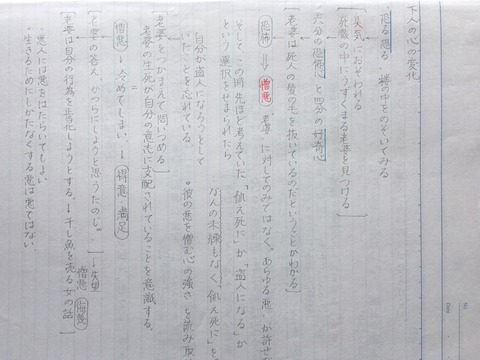 下人の心の変化
恐る恐る 楼の中をのぞいてみる
臭気におそわれる
死骸の中にうずくまる老婆を見つける
六分の恐怖心と四分の好奇心
老婆は死人の髪の毛を抜いているのだということがわかる
恐怖 ⇒ 憎悪 老婆に対してのみではなく、あらゆる悪
そして、この時、先ほど考えていた「飢え死に」か「盗人になる」か
という選択をせまられたら
なんの未練もなく、飢え死にを
彼の悪を憎む心の強さを読み取
自分が盗人になろうとして
いたことを忘れている。
老婆をつかまえて問いつめる
老婆の生死が自分の意志に支配されていることを意識する。
憎悪 → 冷めてしまい → 得意 満足
老婆の答え、かつらにしようと思うたのじゃ。 → 失望
憎悪 侮蔑
老婆は自分の行為を正当化しようとする。→ 干し魚を売る女の話
悪人には悪をはたらいてしまい
生きるためにしかたなくする悪は悪ではない。